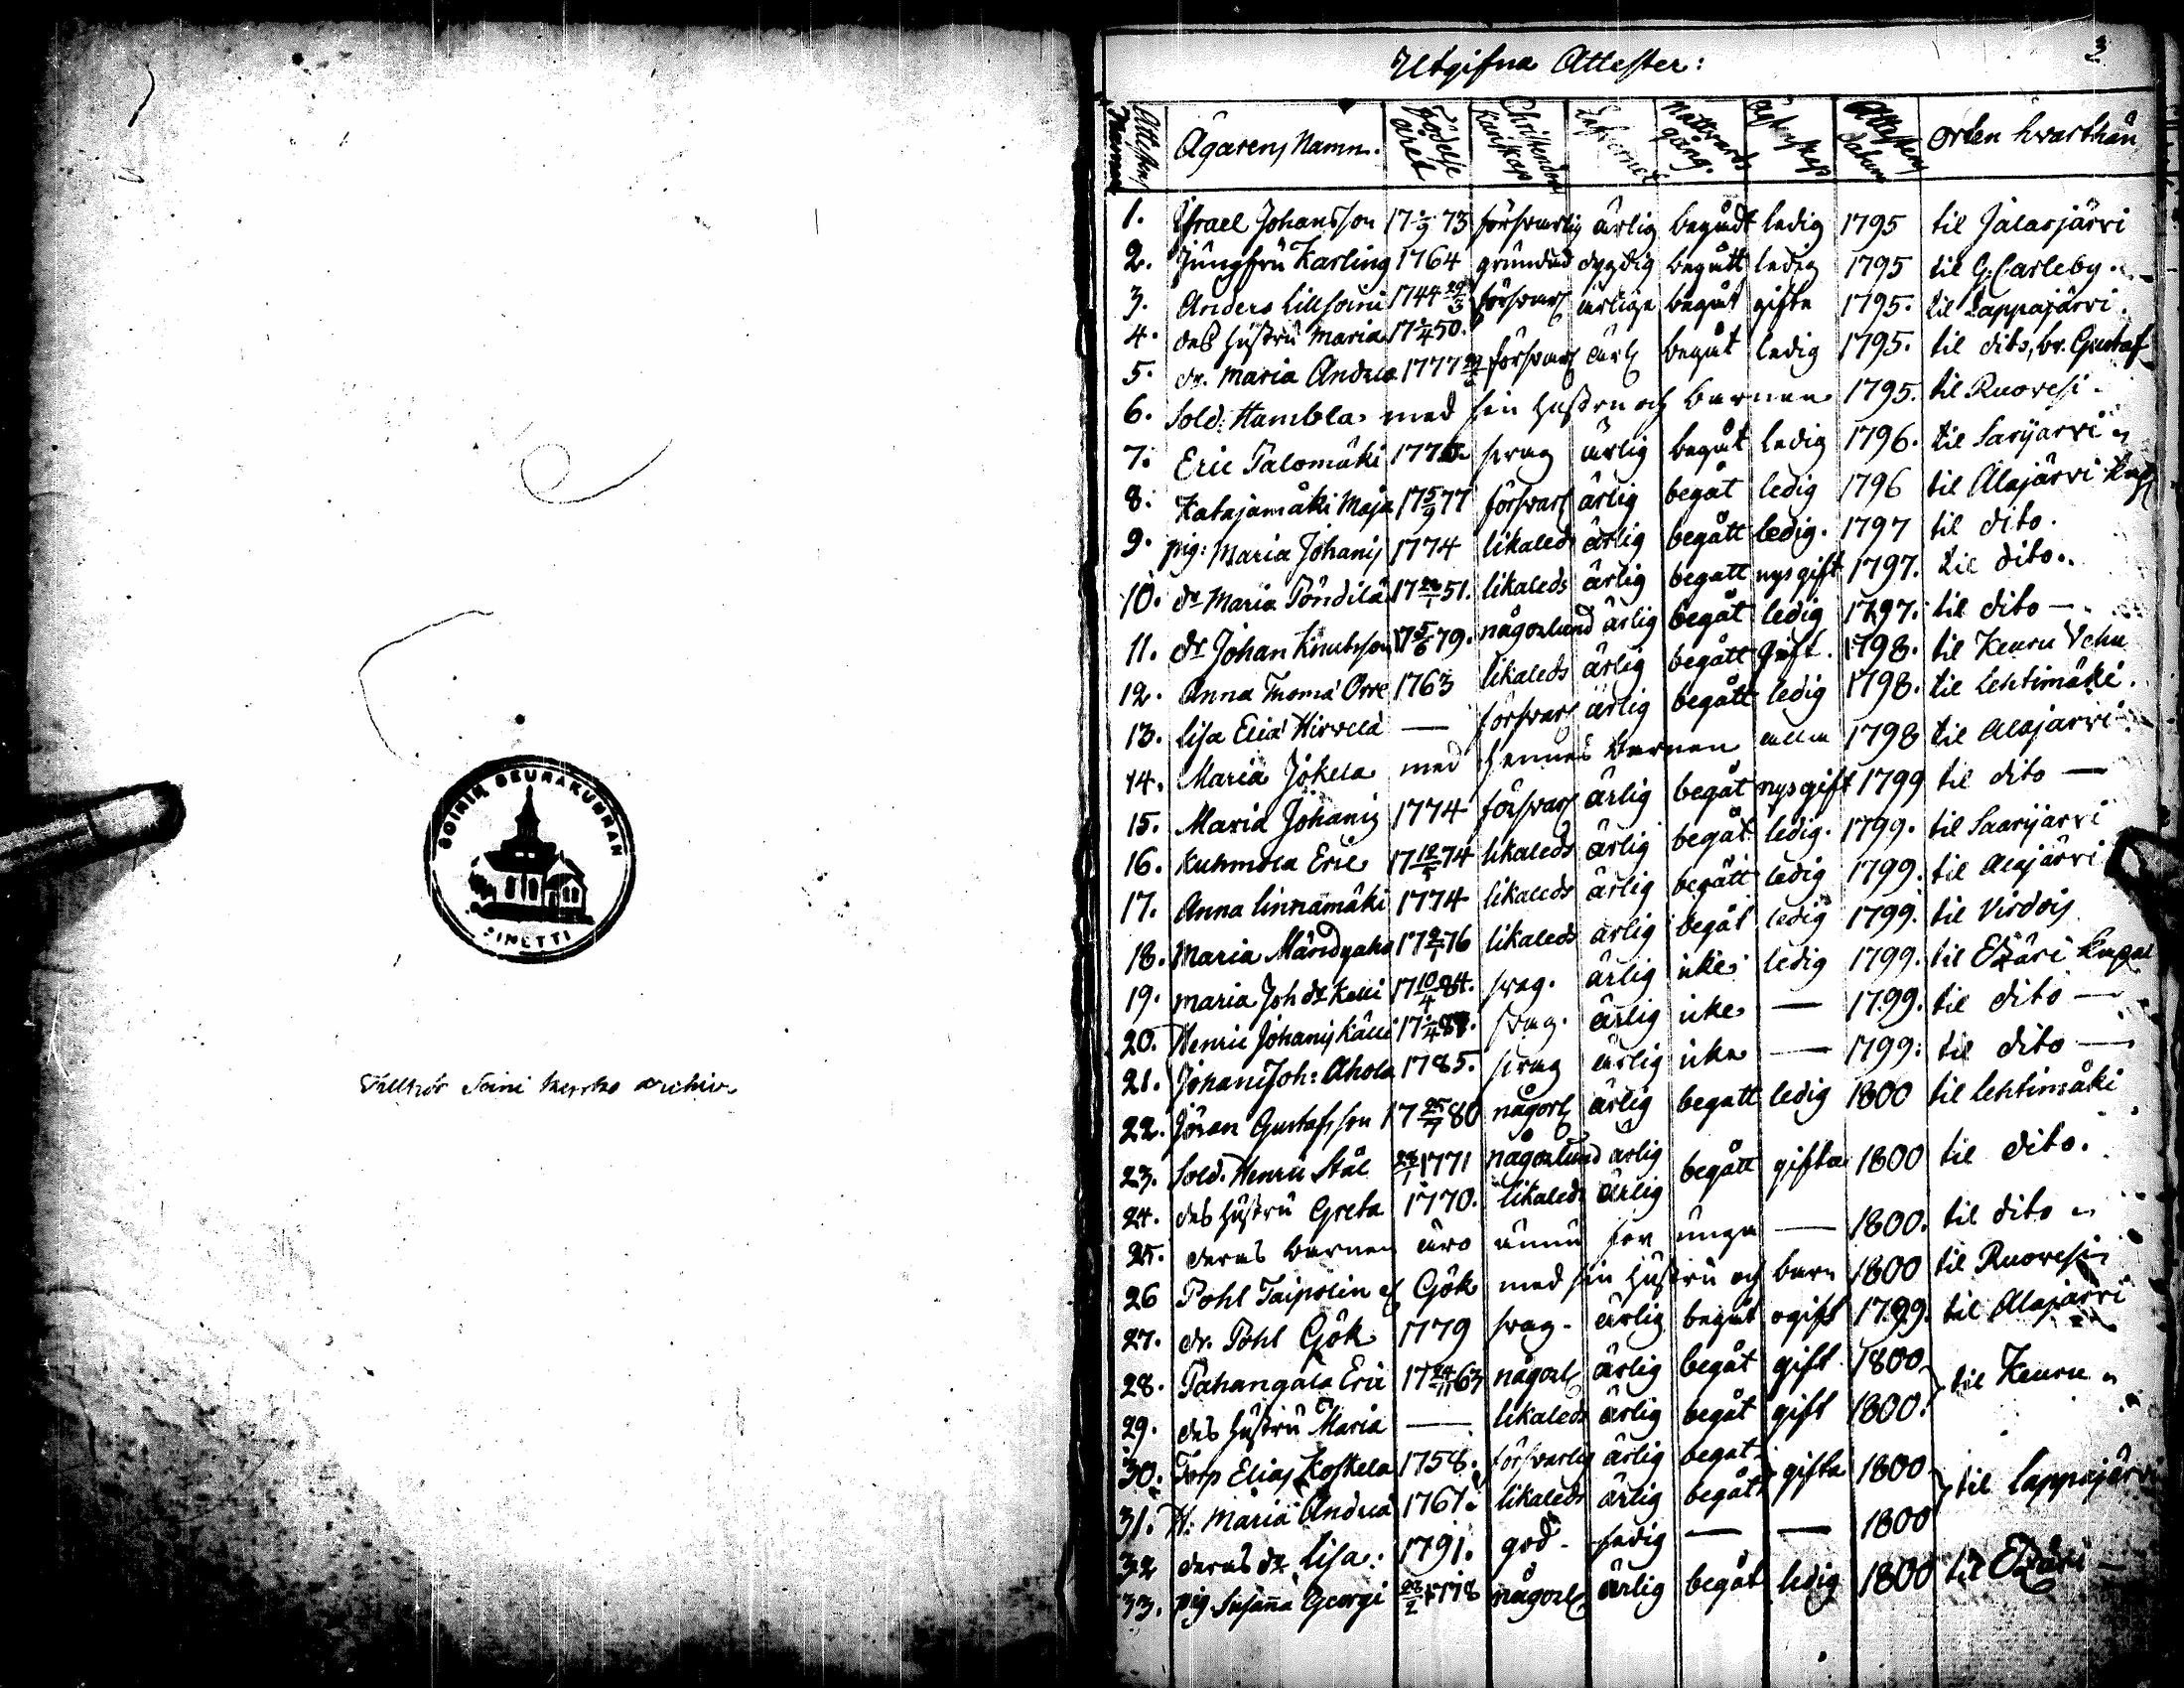 SOININ SEURAKUNNAN
SINETTI
Tillhör Soini kyrko archiv
3
Utgifna Attester:
Attestens Nummer Ägarens Namn. Födelse året Christendoms kunskap Lefverne Nattvards gång. Ägtenskap Attestens datum Orten hvarthän
1. Israel Johansson 17 73 försvarlig ärlig begådt ledig 1795 til Jalasjärvi
2. Jungfru Karling 1764 grundad dygdig begått ledig 1795 til G. Carleby
3. Anders Lillsoini 1744 försvarl ärlige begåt gifte 1795. til Lappajärvi.
4. des hustru Maria 17 50.
5. dr. Maria Andrea 1777 försvarl ärl begåt ledig 1795. til dito, br. Gustaf
6. Sold: Hambla med sin hustru och barnen 1795. til Ruovesi
7. Eric Palomäki svag ärlig begåt ledig 1796. til Sarijärvi
8. Katajamäki Maja 17 5/9 77 försvarl ärlig begåt ledig 1796 til Alajärvi
9. pig: Maria Johanis 1774 likaleds ärlig begått ledig. 1797 til dito.
10. dr Maria Pöndilä 17 51. likaleds ärlig begått nysgift 1797. til dito.
11. dr Johan Knutsson 17 5/6 79. någorlund ärlig begåt ledig 1797. til dito —
12. Anna Thoma Orre 1763 likaleds ärlig begått gift. 1798. til Keuru
13. Lisa Eliä Hirvelä — försvarl ärlig begått ledig 1798. til Lehtimäki.
14. Maria Jokela med hennes barnen alla 1798 til Alajärvi
15. Maria Johanis 1774 försvarl ärlig begåt nysgift 1799 til dito —
16. Kuhmola Eric 17 74 likaleds ärlig begåt ledig. 1799. til Saarijärvi
17. Anna Linnamäki 1774 likaleds ärlig begått ledig 1799. til Alajärvi
18. Maria 17 76 likaleds ärlig begåt ledig 1799. til Virdois
19. Maria Joh dr Kalli 17 10/4 84. svag. ärlig icke ledig 1799. til Etzäri
20. Henric Johanis Källi 17 svag. ärlig icke — 1799. til dito —
21. Johan Joh: Ahola 1785. svag ärlig icke — 1799. til dito —
22. Jöran Gustafsson 17 25/7 80 någorl ärlig begått ledig 1800 til Lehtimäki
23. Sold. Henric Stål 1771 någorlund ärlig begått gifta 1800 til dito.
24. des hustru Greta 1770. likaleds ärlig
25. deras barnen äro ännu för unga — 1800. til dito
26 Pohl Taipolin el Gök med sin hustru och barn 1800 til Ruovesi
27. dr. Pohl Gök 1779 svag. ärlig begåt ogift 1799. til Alajärvi
28. Pahangala Eric 17 24/11 63 någorl ärlig begåt gift 1800. til Keuru
29. des hustru Maria — likaleds ärlig begåt gift 1800.
30. Torp Elias Koskela 1758. försvarlig ärlig begåt gifta 1800 til Lappajärvi
31. H: Maria Andreä 1761. likaleds ärlig begåt
32 deras dr Lisa: 1791. god sedig — — 1800
33. pig Susanna Georgi 1778 någorl ärlig begåt ledig 1800 til Etzäri —